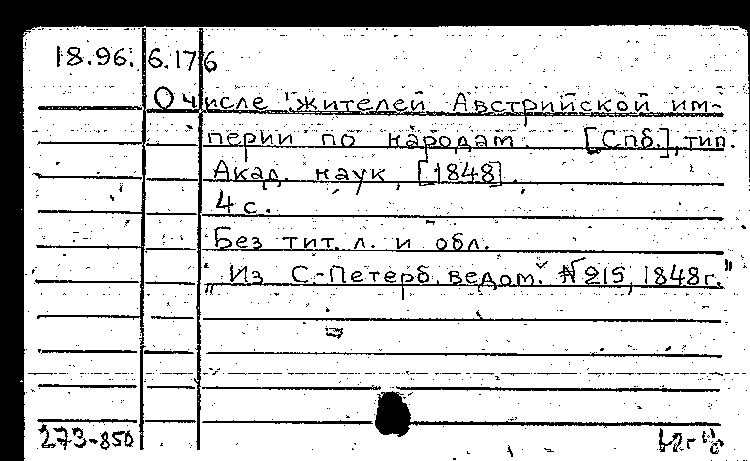 18.96. 6.176
О числе жителей Австрийской им-
перии по народам. [Спб.], тип.
Акад. наук, [1848].
4 с.
Без тит. л. и обл.
"Из С.-Петерб. ведом." № 215, 1848г."
273-850